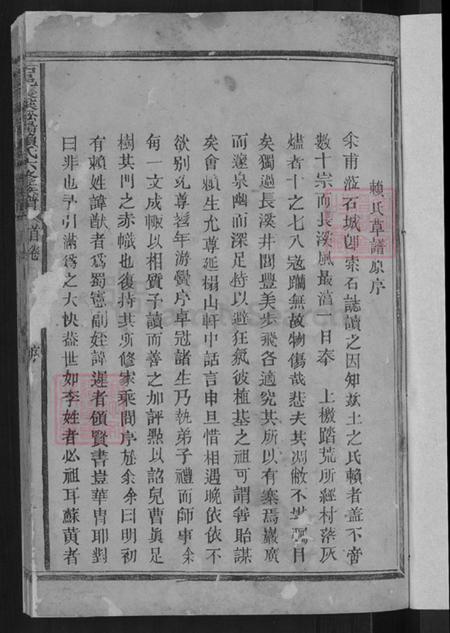 賴氏草譜原序
余甫蒞石城卽索石誌讀之因知茲土之氏賴者蓋不啻
數十宗而長溪風最溢一日奉　上檄踏荒所經村落灰
燼者十之七八寇躪無故物傷哉悲夫其凋敝不堪屬目
矣獨過長溪井閭豐美步飛各適究其所以有寨焉巖廣
而邃泉幽而深足恃以避狂氛彼植基之祖可謂善貽謀
矣會賴生允尊延榻山軒中話言申旦惜相遇晚依依不
欲別允尊髫年游黌序卓冠諸生乃執弟子禮而師事余
每一文成輒以相質予讀而善之加評點以詔兒曹奚足
樹其門之赤幟也復持其所修家乘問序於余余曰明初
有賴姓諱猷者爲蜀憲副姪諱遲者領賢書豈華胄耶對
曰非也予引滿爲之大快蓋世如李姓者必祖耳蘇黃者
邑 松陽賴氏六修族譜
首卷
序